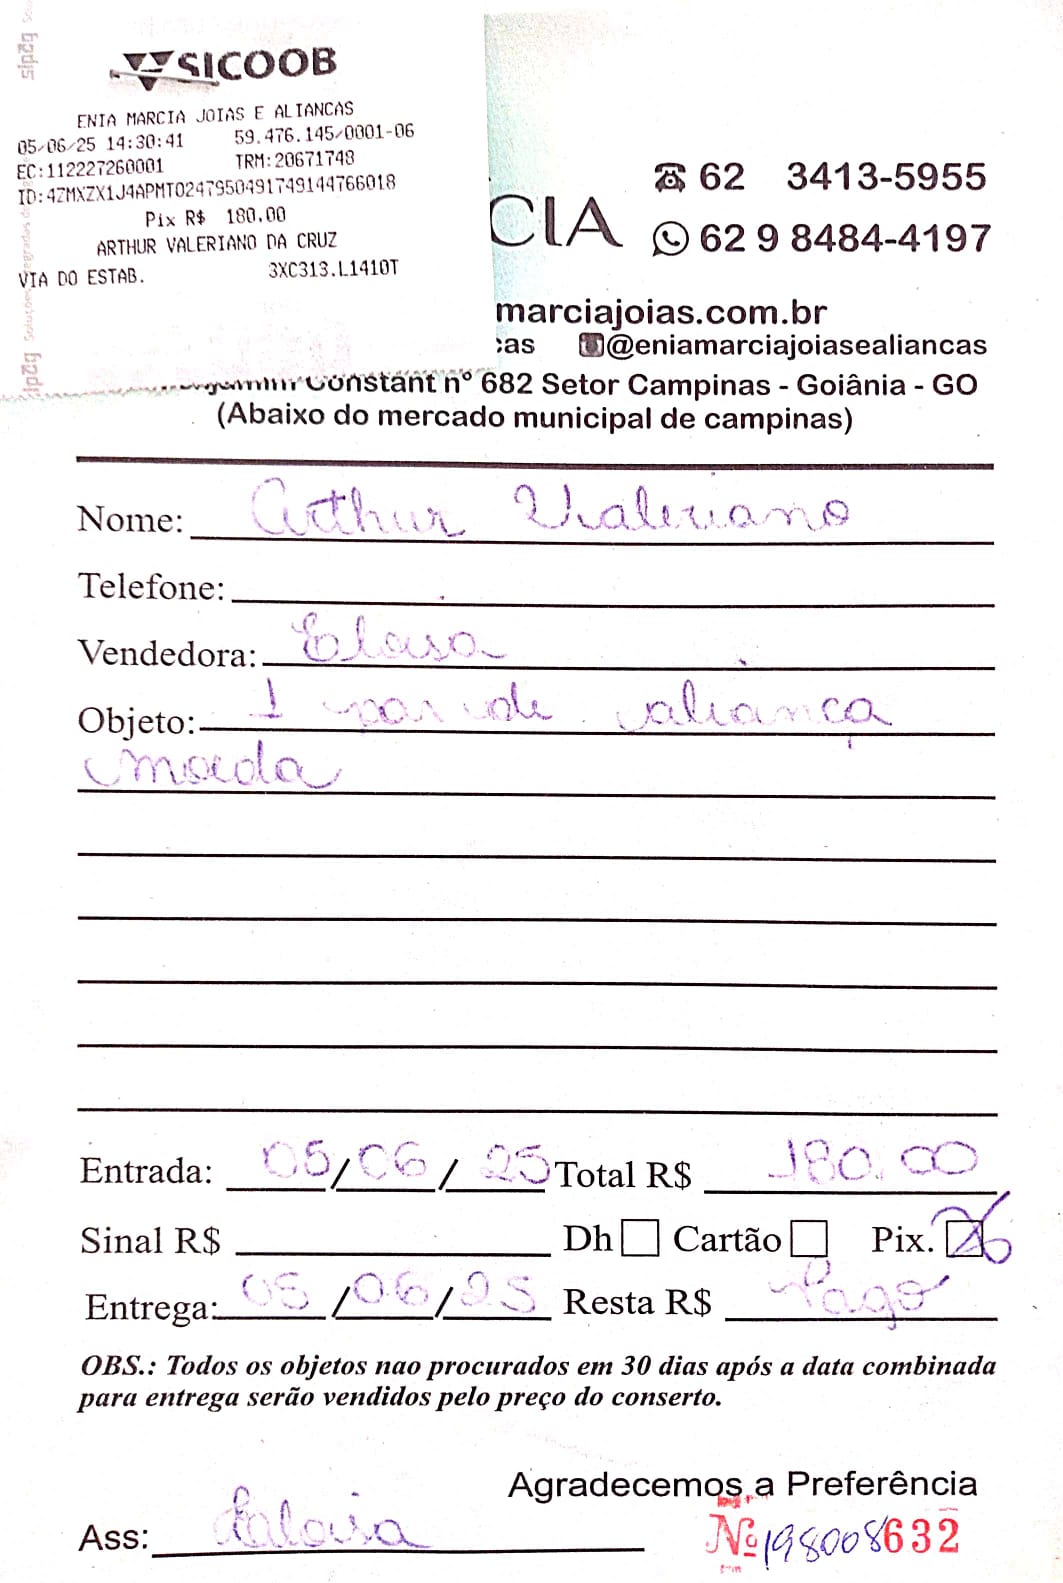 SICOOB
ENIA MARCIA JOIAS E ALIANCAS
05/06/25 14:30:41 59.476.145/0001-06
EC:112227260001 TRM:20671748
ID:4ZMXZX1J4APMT0247950491749144766018
Pix R$ 180.00
ARTHUR VALERIANO DA CRUZ
VIA DO ESTAB. 3XC313.L1410T
62 3413-5955
CIA 62 9 8484-4197
marciajoias.com.br
as @eniamarciajoiasealiancas
Constant nº 682 Setor Campinas - Goiânia - GO
(Abaixo do mercado municipal de campinas)
Nome: Arthur Valeriano
Telefone:
Vendedora: Eloisa
Objeto: 1 par de aliança
moeda
Entrada: 05/06/25 Total R$ 180.00
Sinal R$ Dh Cartão Pix.
Entrega: 05/06/25 Resta R$ Pago
OBS.: Todos os objetos nao procurados em 30 dias após a data combinada
para entrega serão vendidos pelo preço do conserto.
Agradecemos a Preferência
Ass: Eloisa
Nº 198008632